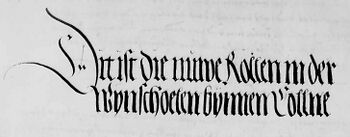 Dit ist die nuwe Rollen in der
Wynschoelen bynnen Collne